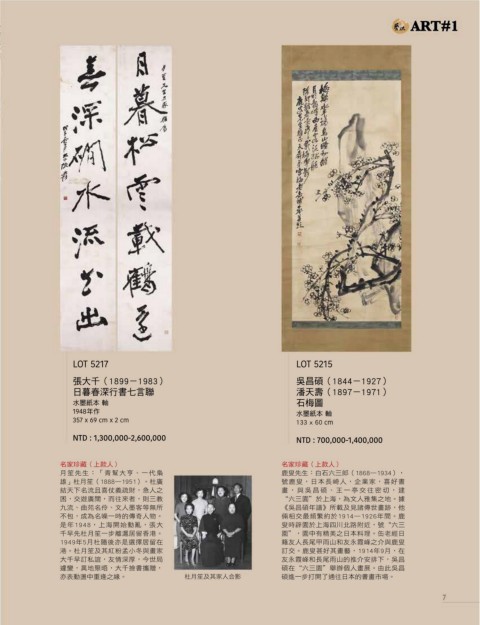 ART#1
LOT 5217
張大千（1899－1983）
日暮春深行書七言聯
水墨紙本 軸
1948年作
357 x 69 cm x 2 cm
NTD : 1,300,000-2,600,000
名家珍藏（上款人）
月笙先生：「青幫大亨、一代梟
雄」杜月笙（1888－1951），杜廣
結天下名流且喜仗義疏財，急人之
困，交遊廣闊，而往來者，則三教
九流、曲苑名伶、文人墨客等無所
不包，成為名噪一時的傳奇人物。
是年1948，上海開始動亂，張大
千早先杜月笙一步離滬居留香港。
1949年5月杜隨後亦是選擇居留在
港，杜月笙及其紅粉孟小冬與畫家
大千早訂私誼，友情深厚。今世局
杜月笙及其家人合影
LOT 5215
吳昌碩（1844－1927）
潘天壽（1897－1971）
石梅圖
水墨紙本 軸
133 x 60 cm
NTD : 700,000-1,400,000
名家珍藏（上款人）
鹿叟先生：白石六三郎（1868－1934），
號鹿叟，日本長崎人，企業家，喜好書
畫，與吳昌碩、王一亭交往密切，建
“六三園”於上海，為文人雅集之地。據
《吳昌碩年譜》所載及見諸傳世畫跡，他
倆相交最頻繁約於1914－1926年間，鹿
叟時辟置於上海四川北路附近，號“六三
園”，園中有精美之日本料理。缶老經日
籍友人長尾甲雨山和友永霞峰之介與鹿叟
訂交。鹿叟甚好其書藝，1914年9月，在
友永霞峰和長尾雨山的推介安排下，吳昌
碩在“六三園”舉辦個人書展。由此吳昌
碩進一步打開了通往日本的書畫市場。
7